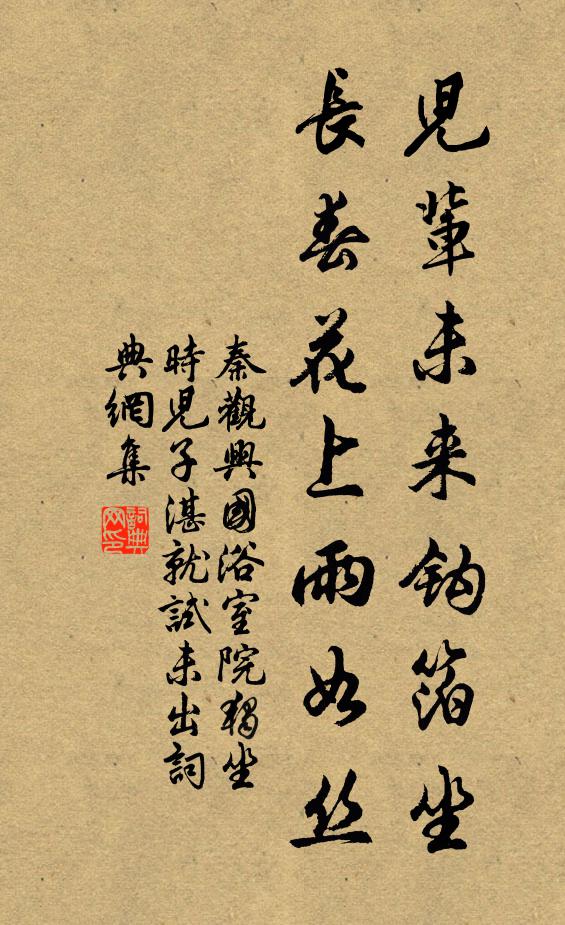 兒輩未来鈎箔坐
長春花上雨如丝
秦觀興國浴室院獨坐
時兒子湛就試未出詞
典網集
詞典网印